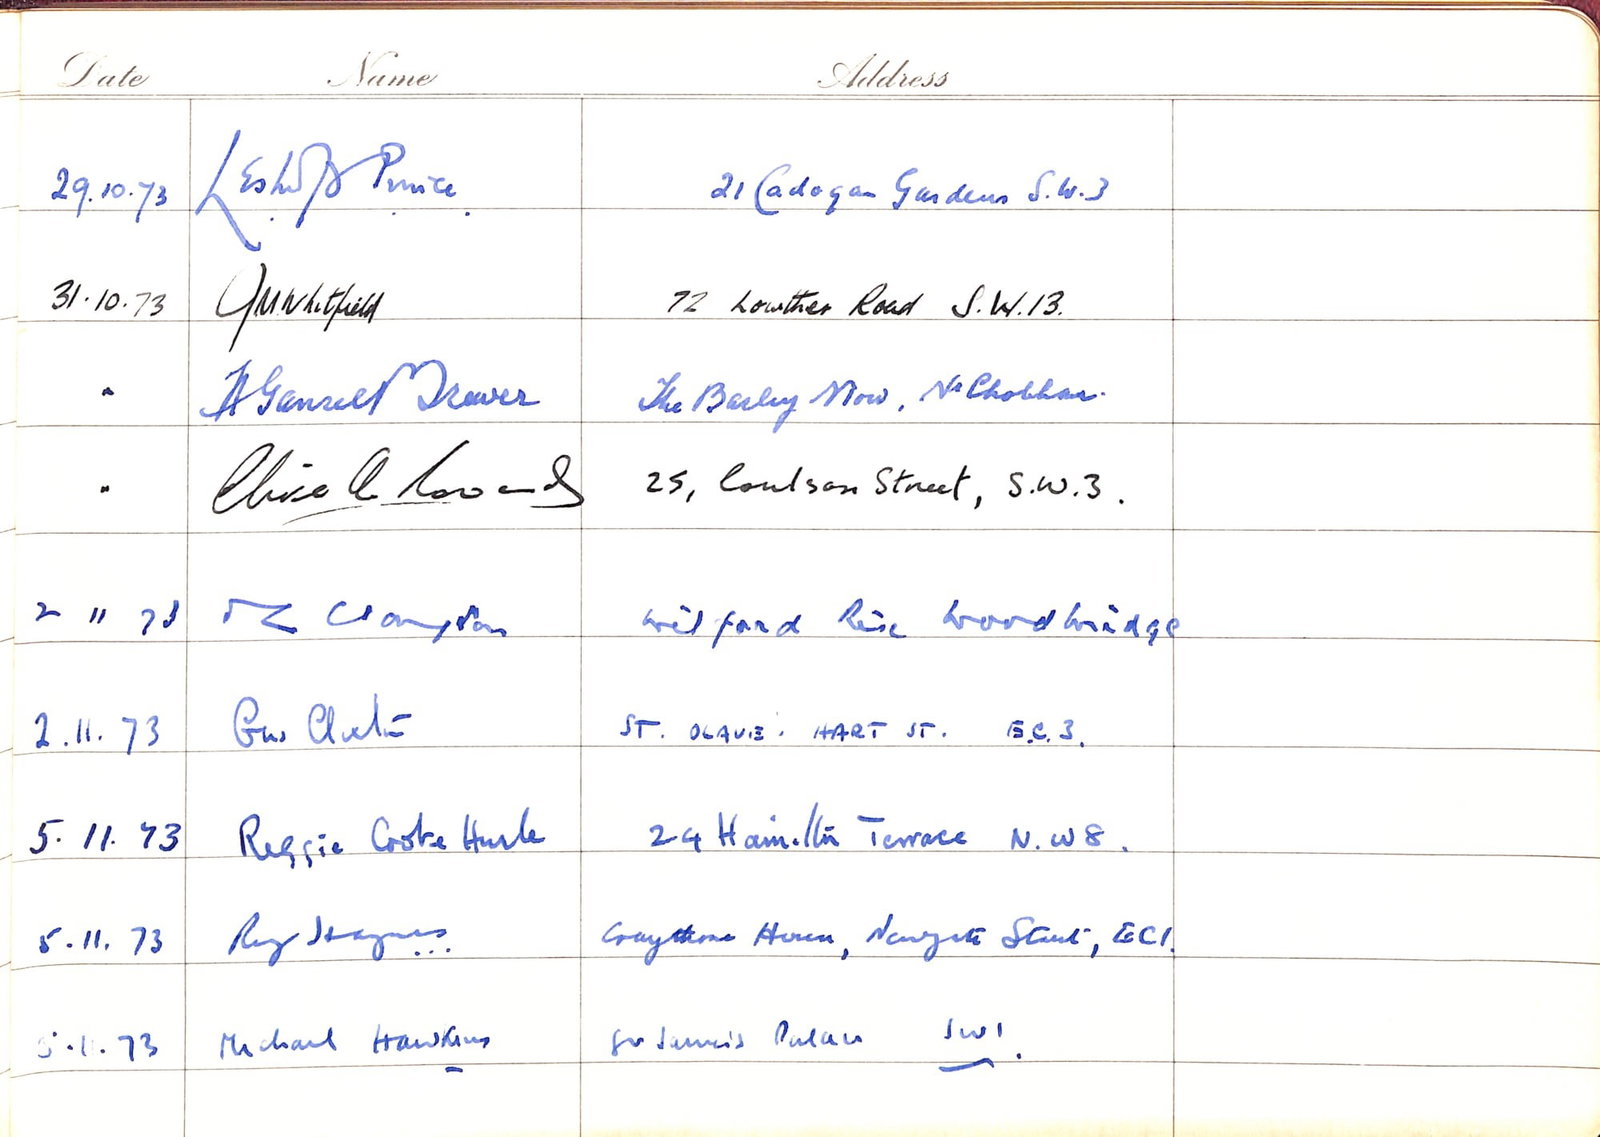 Date Name Address
29.10.73 Leslie Prince 21 Cadogan Gardens S.W.3
31.10.73 JM Whitfield 72 Lowther Road S.W.13.
" The Barley Mow, Nr Chobham.
" 25, Coulson Street, S.W.3.
2 11 73 Wilford Rise Woodbridge
2.11.73 ST. OLAVE. HART ST. E.C.3.
5.11.73 Reggie Cooke Hurle 24 Hamilton Terrace N.W8.
5.11.73 House, Newgate Street, EC1.
5.11.73 Michael Hawkins St James's Palace SW1.